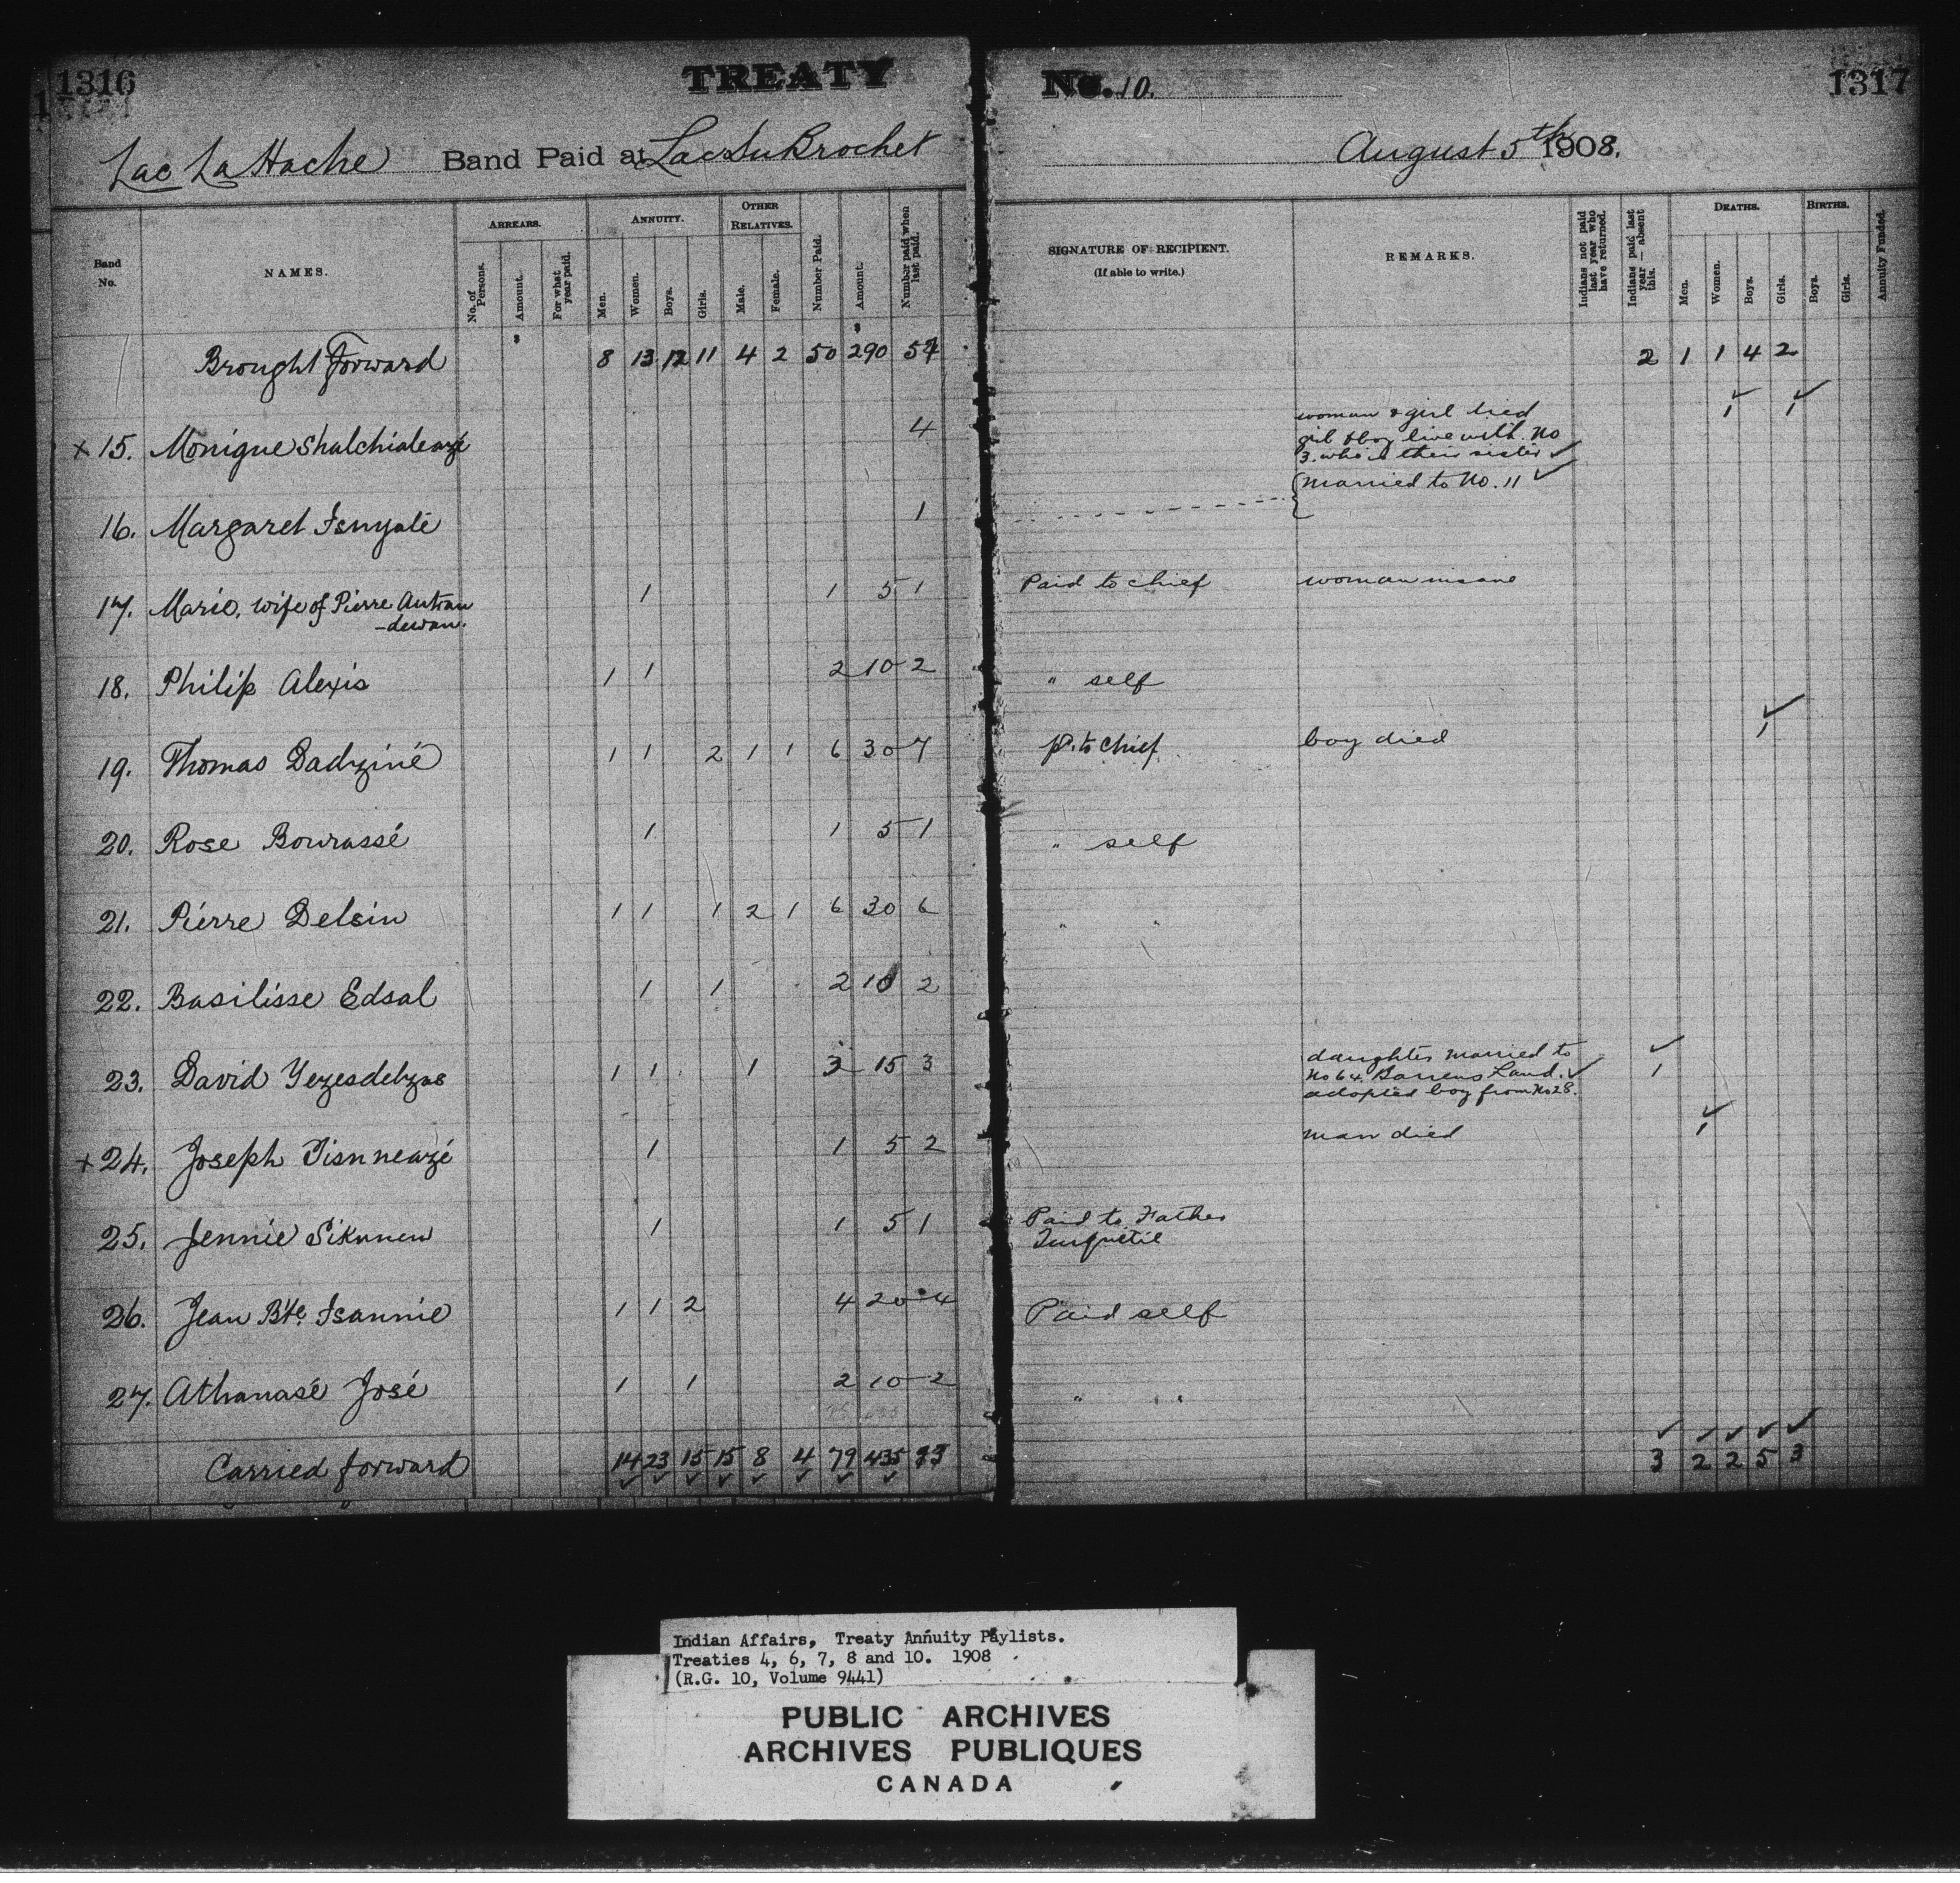 1316
TREATY
No. 10.
1317
Lac La Hache Band Paid at Lac Du Brochet
August 5th 1908.
Band No.
NAMES.
ARREARS.
No. of Persons.
Amount.
For what year paid.
ANNUITY.
Men.
Women.
Boys.
Girls.
OTHER RELATIVES.
Male.
Female.
Number Paid.
Amount.
Number paid when last paid.
SIGNATURE OF RECIPIENT.
(If able to write.)
REMARKS.
Indians not paid last year who have returned.
Indians paid last year — absent this.
DEATHS.
Men.
Women.
Boys.
Girls.
BIRTHS.
Boys.
Girls.
Annuity Funded.
Brought Forward 8 13 12 11 4 2 50 290 57 2 1 1 4 2
x 15. Monique 4 woman & girl died 1 1
girl & boy live with No
3. who is their sister
16. Margaret 1 married to No. 11
17. Marie, wife of Pierre Autran 1 1 5 1 Paid to chief woman insane
-dewan.
18. Philip Alexis 1 1 2 10 2 " self
19. Thomas Dadziné 1 1 2 1 1 6 30 7 P. to chief boy died 1
20. Rose Bourassé 1 1 5 1 " self
21. Pierre Delsin 1 1 1 2 1 6 30 6 " "
22. Basilisse Edsal 1 1 2 10 2
23. David Yezesdelzas 1 1 1 3 15 3 daughter married to 1
No 64 Barrens Land.
adopted boy from No 28.
x 24. Joseph 1 1 5 2 man died 1
25. Jennie Siknnew 1 1 5 1 Paid to Father
Turquetil
26. Jean Bte. Isannie 1 1 2 4 20 4 Paid self
27. Athanasé José 1 1 2 10 2 " "
Carried forward 14 23 15 15 8 4 79 435 93 3 2 2 5 3
Indian Affairs, Treaty Annuity Paylists.
Treaties 4, 6, 7, 8 and 10. 1908
(R.G. 10, Volume 9441)
PUBLIC ARCHIVES
ARCHIVES PUBLIQUES
CANADA